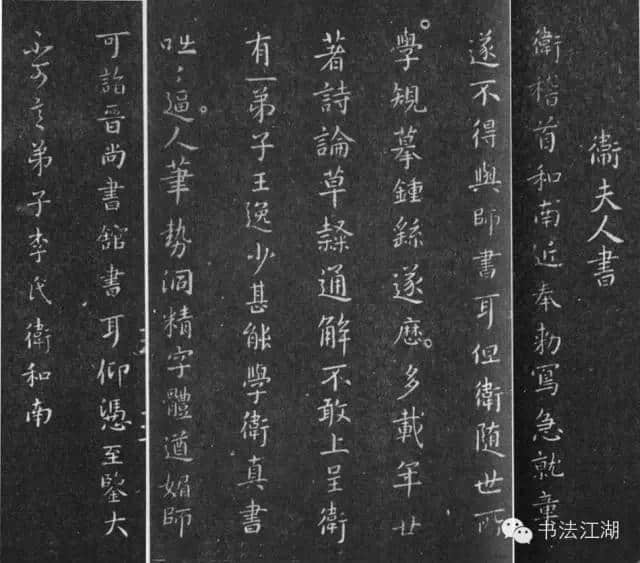 衛夫人書
衛稽首和南近奉勅寫急就章
遂不得與師書耳但衛隨世所
學規摹鍾繇遂歷多載年廿
著詩論草隸通解不敢上呈衛
有一弟子王逸少甚能學衛真書
咄:逼人筆勢洞精字體遒媚師
可詣晉尚書館書耳仰憑至鑒大
不可言弟子李氏衛和南
书法江湖